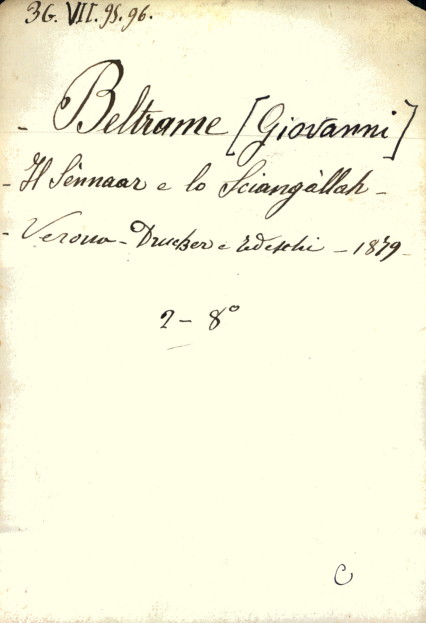 36. VII. 95. 96.
- Beltrame [Giovanni]
- Il Sènnaar e lo Sciangàllah -
- Verona - Drucker e Tedeschi - 1879 -
2 - 8°
C